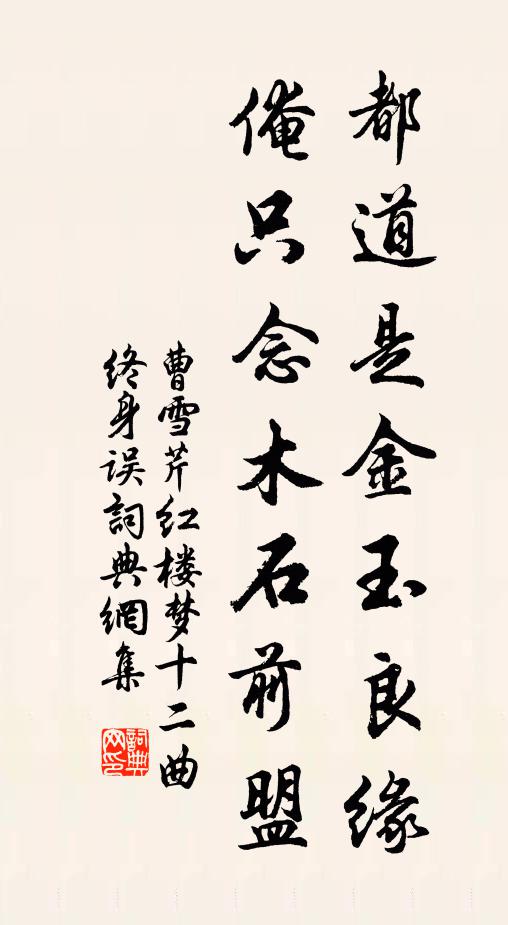 都道是金玉良缘
俺只念木石前盟
曹雪芹红楼梦十二曲
终身误詞典網集
詞典网印